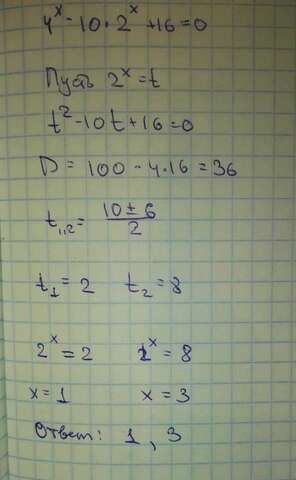 4^x - 10 · 2^x + 16 = 0
Пусть 2^x = t
t² - 10t + 16 = 0
D = 100 - 4·16 = 36
t₁,₂ = (10 ± 6)/2
t₁ = 2    t₂ = 8
2^x = 2    2^x = 8
x = 1    x = 3
Ответ: 1, 3